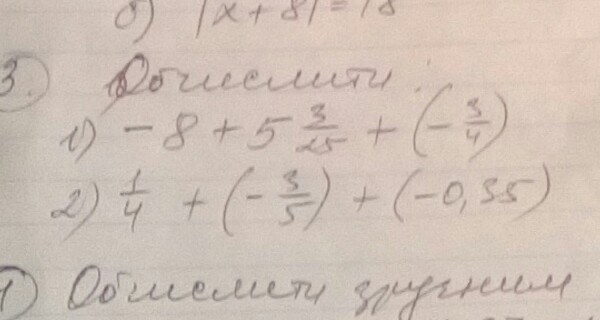 б) |x+8|=18
3. Обчислити:
1) -8 + 5 3/25 + (-3/4)
2) 1/4 + (-3/5) + (-0,35)
1) Обчислити зручним